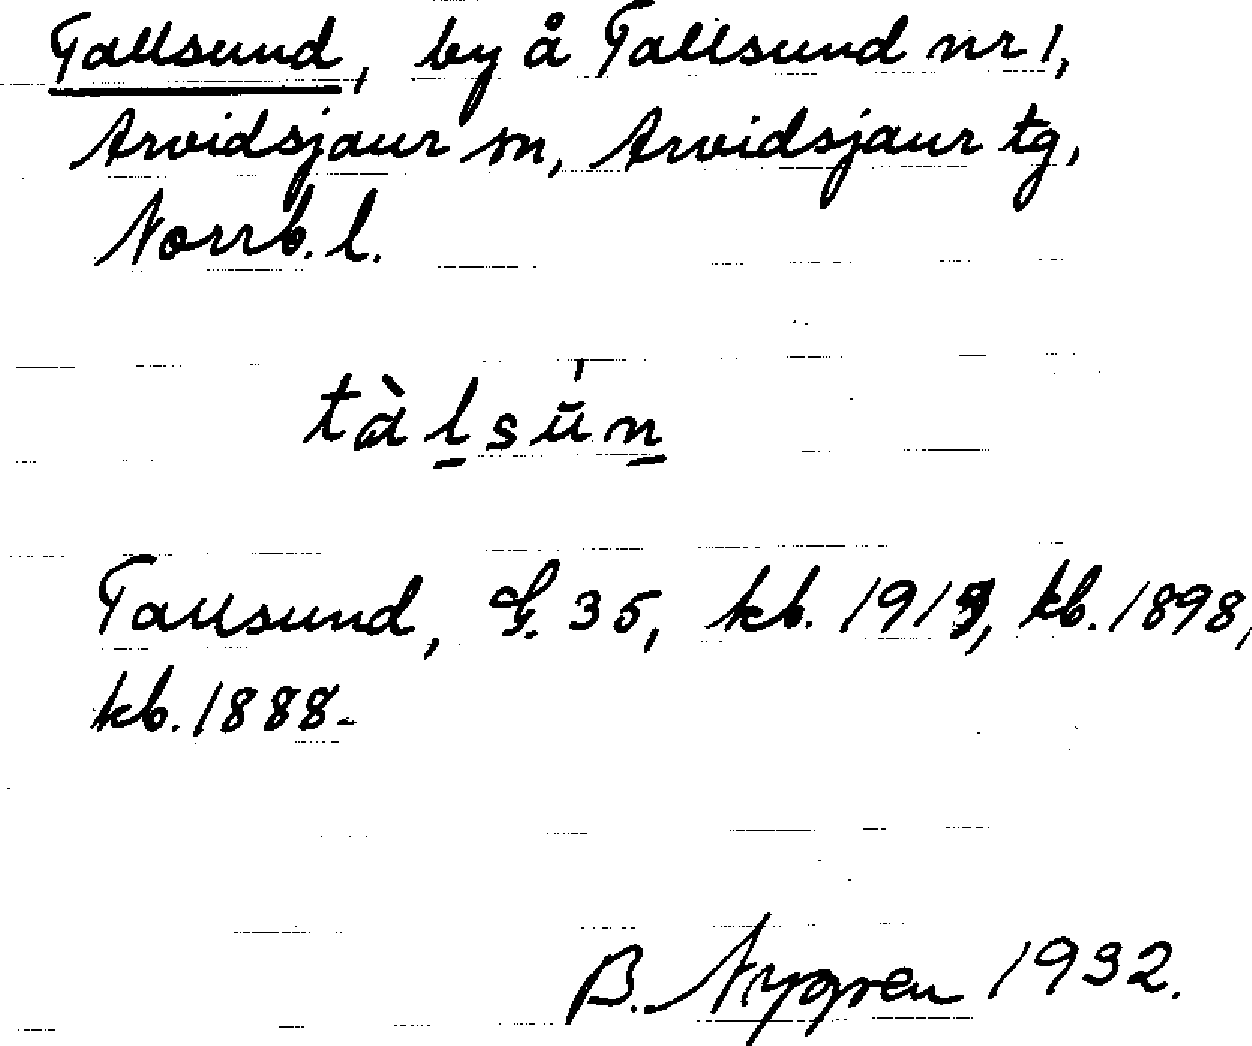 Tallsund, by å Tallsund nr 1,
Arvidsjaur sn, Arvidsjaur tg,
Norrb. l.
tàl̲sū́n̲
Tallsund, G. 35, kb. 1919, kb. 1898,
kb. 1888.
B. Nygren 1932.